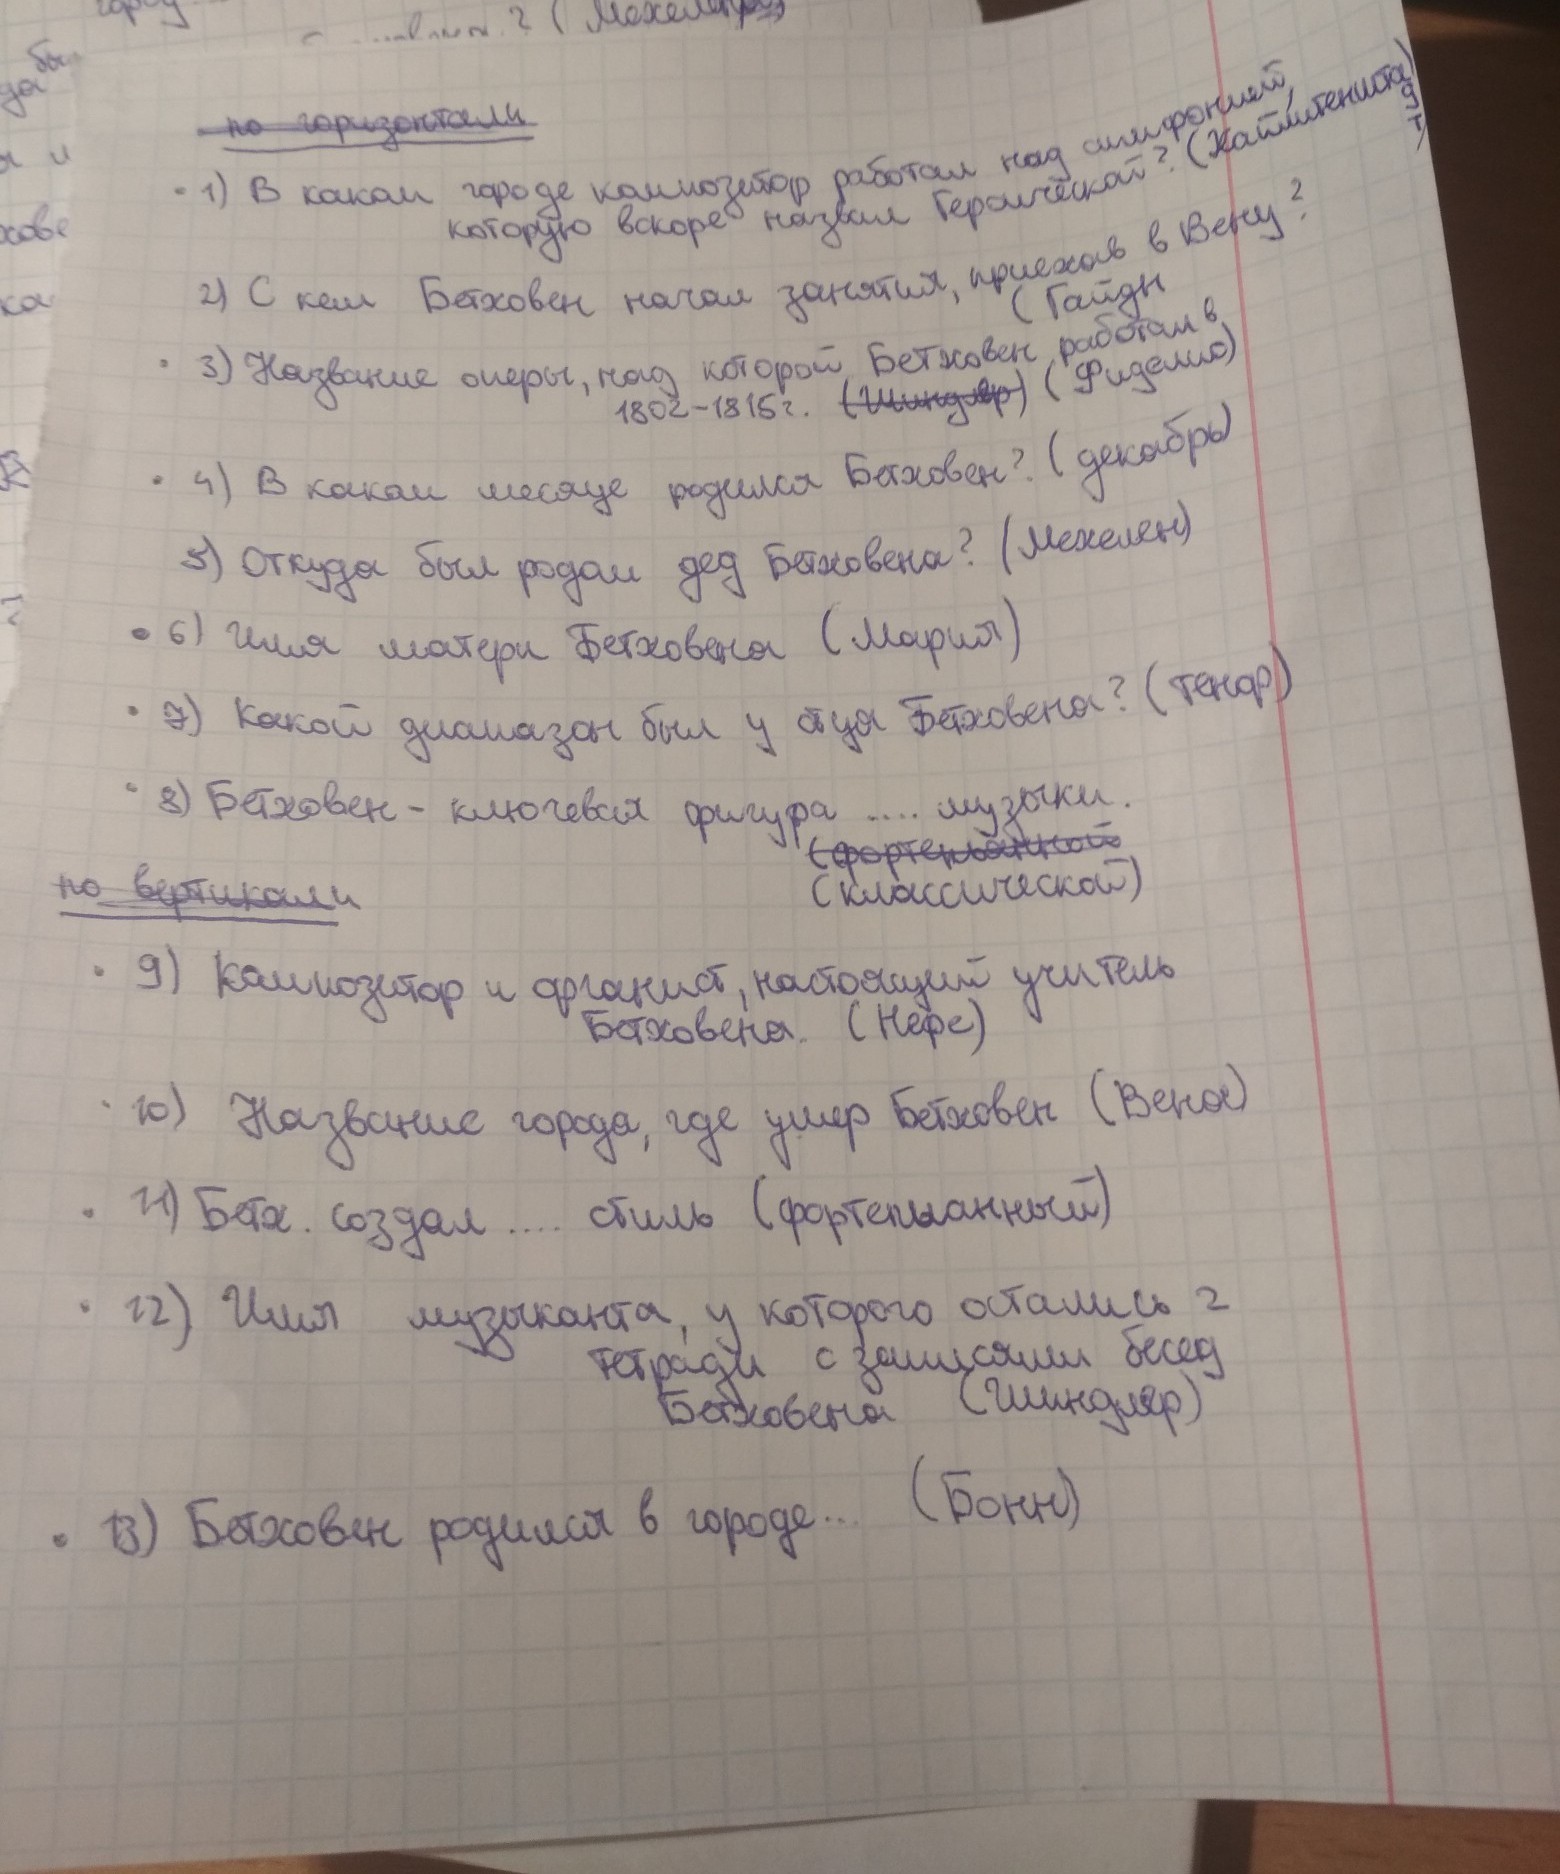 город
? (Мехелен)
по горизонтали
1) В каком городе композитор работал над симфонией,
которую вскоре назвал Героической? (Хайлигенштадт)
2) С кем Бетховен начал занятия, приехав в Вену?
(Гайдн
3) Название оперы, над которой Бетховен работал в
1802-1815г. (Шиндлер) (Фиделио)
4) В каком месяце родился Бетховен? (декабрь)
5) Откуда был родом дед Бетховена? (Мехелен)
6) Имя матери Бетховена (Мария)
7) Какой диапазон был у отца Бетховена? (тенор)
8) Бетховен - ключевая фигура .... музыки.
(фортепьянной
(классической)
по вертикали
9) Композитор и органист, настоящий учитель
Бетховена. (Нефе)
10) Название города, где умер Бетховен (Вена)
11) Бетх. создал .... стиль (фортепианный)
12) Имя музыканта, у которого остались 2
тетради с записями бесед
Бетховена (Шиндлер)
13) Бетховен родился в городе... (Бонн)